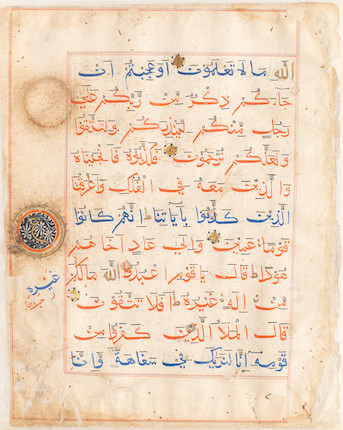 الله ما لا تعلمون أوعجبتم أن
جاءكم ذكر من ربكم على
رجل منكم لينذركم ولتتقوا
ولعلكم ترحمون فكذبوه فأنجيناه
والذين معه في الفلك وأغرقنا
الذين كذبوا بآياتنا إنهم كانوا
قوما عمين وإلى عاد أخاهم
هودا قال يا قوم اعبدوا الله مالكم
من إله غيره أفلا تتقون
قال الملأ الذين كفروا من
قومه إنا لنريك في سفاهة وإنا
غيره